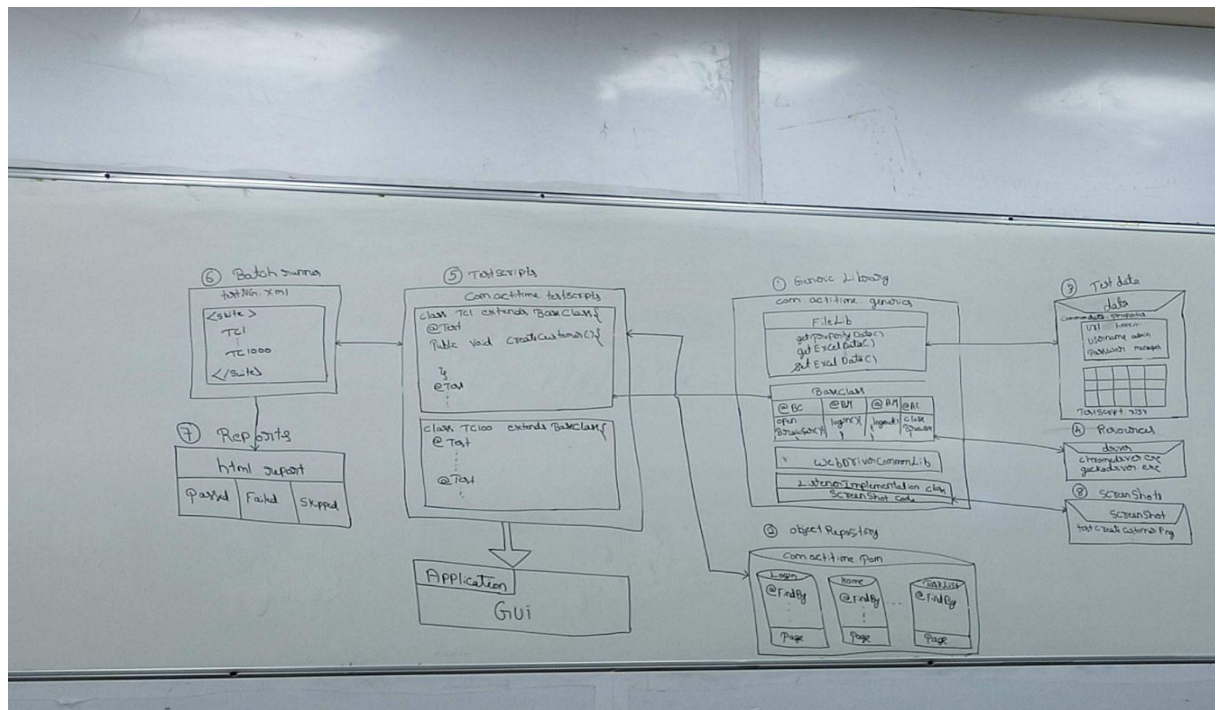 ⑥ Batch runner
testNG.xml
<suite>
TC1
TC1000
</suite>
⑦ Reports
html report
Passed
Failed
Skipped
⑤ Testscripts
com actitime testscripts
class TC1 extends BaseClass{
@Test
Public void CreateCustomer(){
}
@Test
class TC100 extends BaseClass{
@Test
@Test
Application
GUi
① Generic Library
com.actitime.generics
FileLib
getPropertyData()
getExcelData()
setExcelData()
BaseClass
@BC
@BM
@AM
@AC
open
Browser(){
login(){
logout(){
close
Browser
WebDriverCommonLib
ListenerImplementation class
ScreenShot code
② object Repository
com actitime pom
Login
@FindBy
Page
Home
@FindBy
Page
TaskList
@FindBy
Page
③ Test data
data
url
username admin
password manager
④ Resources
driver
chromedriver exe
geckodriver exe
⑧ ScreenShots
ScreenShot